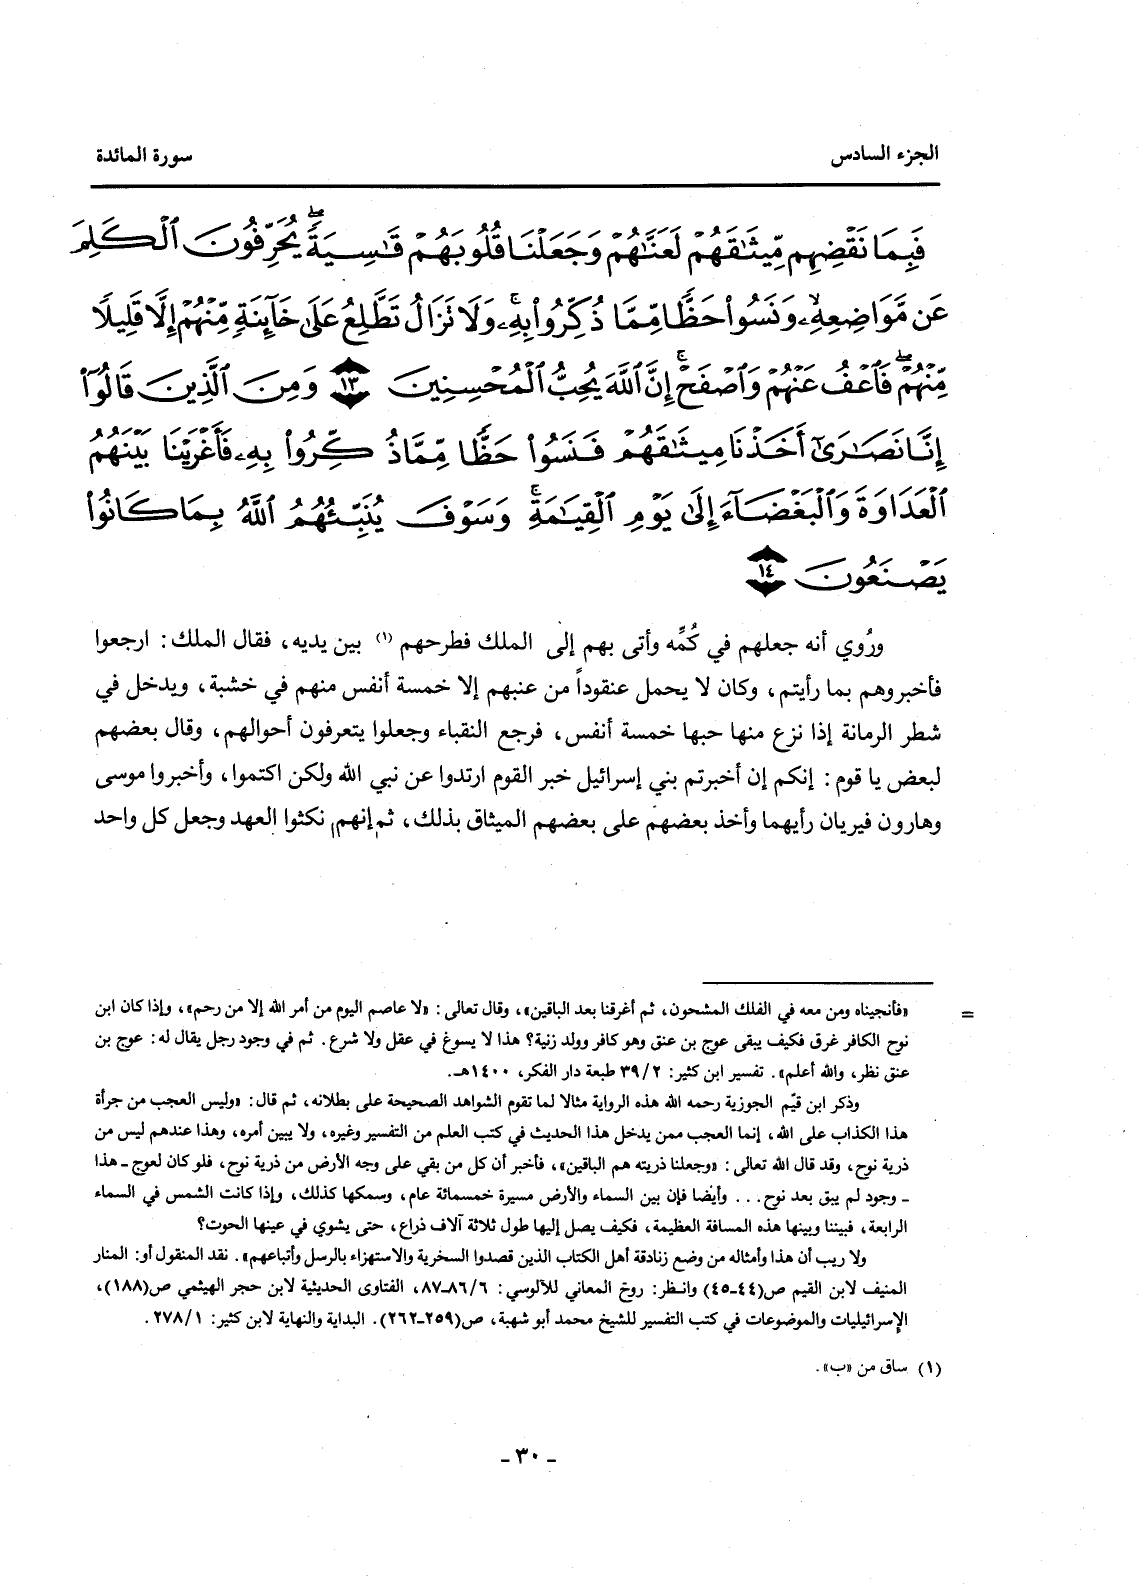 الجزء السادس
سورة المائدة
فَبِمَا نَقْضِهِم مِّيثَٰقَهُمْ لَعَنَّٰهُمْ وَجَعَلْنَا قُلُوبَهُمْ قَٰسِيَةً ۖ يُحَرِّفُونَ ٱلْكَلِمَ
عَن مَّوَاضِعِهِۦ ۙ وَنَسُوا۟ حَظًّا مِّمَّا ذُكِّرُوا۟ بِهِۦ ۚ وَلَا تَزَالُ تَطَّلِعُ عَلَىٰ خَآئِنَةٍ مِّنْهُمْ إِلَّا قَلِيلًا
مِّنْهُمْ ۖ فَٱعْفُ عَنْهُمْ وَٱصْفَحْ ۚ إِنَّ ٱللَّهَ يُحِبُّ ٱلْمُحْسِنِينَ ١٣ وَمِنَ ٱلَّذِينَ قَالُوٓا۟
إِنَّا نَصَٰرَىٰٓ أَخَذْنَا مِيثَٰقَهُمْ فَنَسُوا۟ حَظًّا مِّمَّا ذُكِّرُوا۟ بِهِۦ فَأَغْرَيْنَا بَيْنَهُمُ
ٱلْعَدَاوَةَ وَٱلْبَغْضَآءَ إِلَىٰ يَوْمِ ٱلْقِيَٰمَةِ ۚ وَسَوْفَ يُنَبِّئُهُمُ ٱللَّهُ بِمَا كَانُوا۟
يَصْنَعُونَ ١٤
ورُوي أنه جعلهم في كُمِّه وأتى بهم إلى الملك فطرحهم (١) بين يديه، فقال الملك: ارجعوا
فأخبروهم بما رأيتم، وكان لا يحمل عنقوداً من عنبهم إلا خمسة أنفس منهم في خشبة، ويدخل في
شطر الرمانة إذا نزع منها حبها خمسة أنفس، فرجع النقباء وجعلوا يتعرفون أحوالهم، وقال بعضهم
لبعض يا قوم: إنكم إن أخبرتم بني إسرائيل خبر القوم ارتدوا عن نبي الله ولكن اكتموا، وأخبروا موسى
وهارون فيريان رأيهما وأخذ بعضهم على بعضهم الميثاق بذلك، ثم إنهم نكثوا العهد وجعل كل واحد
= «فأنجيناه ومن معه في الفلك المشحون، ثم أغرقنا بعد الباقين»، وقال تعالى: «لا عاصم اليوم من أمر الله إلا من رحم»، وإذا كان ابن
نوح الكافر غرق فكيف يبقى عوج بن عنق وهو كافر وولد زنية؟ هذا لا يسوغ في عقل ولا شرع. ثم في وجود رجل يقال له: عوج بن
عنق نظر، والله أعلم». تفسير ابن كثير: ٣٩/٢ طبعة دار الفكر، ١٤٠٠هـ.
وذكر ابن قيّم الجوزية رحمه الله هذه الرواية مثالا لما تقوم الشواهد الصحيحة على بطلانه، ثم قال: «وليس العجب من جرأة
هذا الكذاب على الله، إنما العجب ممن يدخل هذا الحديث في كتب العلم من التفسير وغيره، ولا يبين أمره، وهذا عندهم ليس من
ذرية نوح، وقد قال الله تعالى: «وجعلنا ذريته هم الباقين»، فأخبر أن كل من بقي على وجه الأرض من ذرية نوح، فلو كان لعوج ـ هذا
ـ وجود لم يبق بعد نوح... وأيضا فإن بين السماء والأرض مسيرة خمسمائة عام، وسمكها كذلك، وإذا كانت الشمس في السماء
الرابعة، فبيننا وبينها هذه المسافة العظيمة، فكيف يصل إليها طول ثلاثة آلاف ذراع، حتى يشوي في عينها الحوت؟
ولا ريب أن هذا وأمثاله من وضع زنادقة أهل الكتاب الذين قصدوا السخرية والاستهزاء بالرسل وأتباعهم». نقد المنقول أو: المنار
المنيف لابن القيم ص(٤٤ـ٤٥) وانظر: روح المعاني للآلوسي: ٨٦/٦ـ٨٧، الفتاوى الحديثية لابن حجر الهيثمي ص(١٨٨)،
الإسرائيليات والموضوعات في كتب التفسير للشيخ محمد أبو شهبة، ص(٢٥٩ـ٢٦٢). البداية والنهاية لابن كثير: ٢٧٨/١.
(١) ساق من «ب».
- ٣٠ -